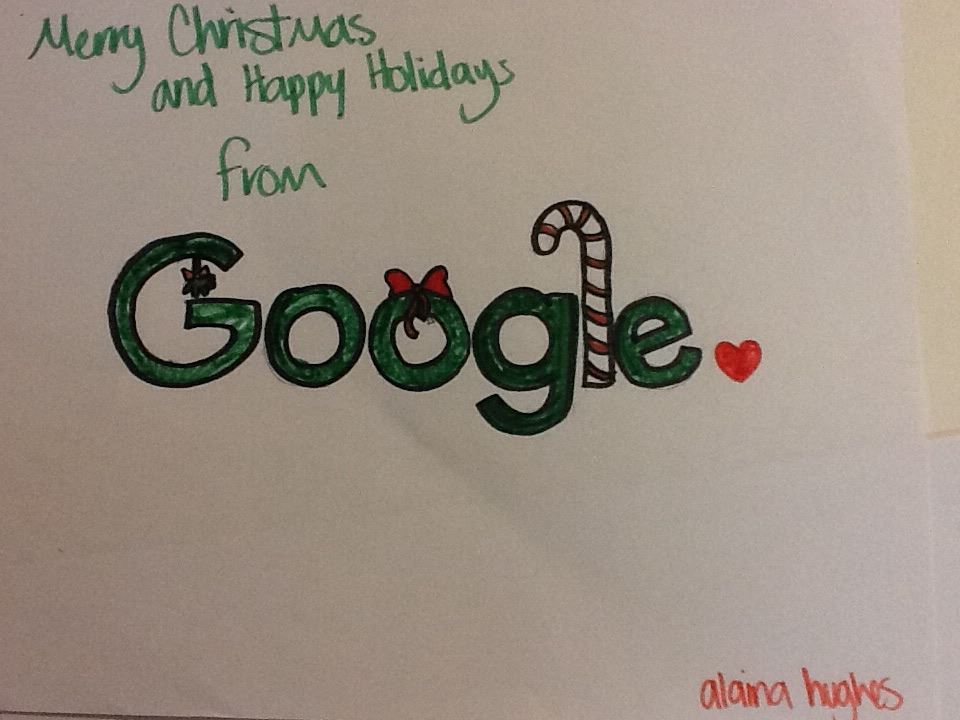 Merry Christmas
and Happy Holidays
from
Google.
alaina hughes